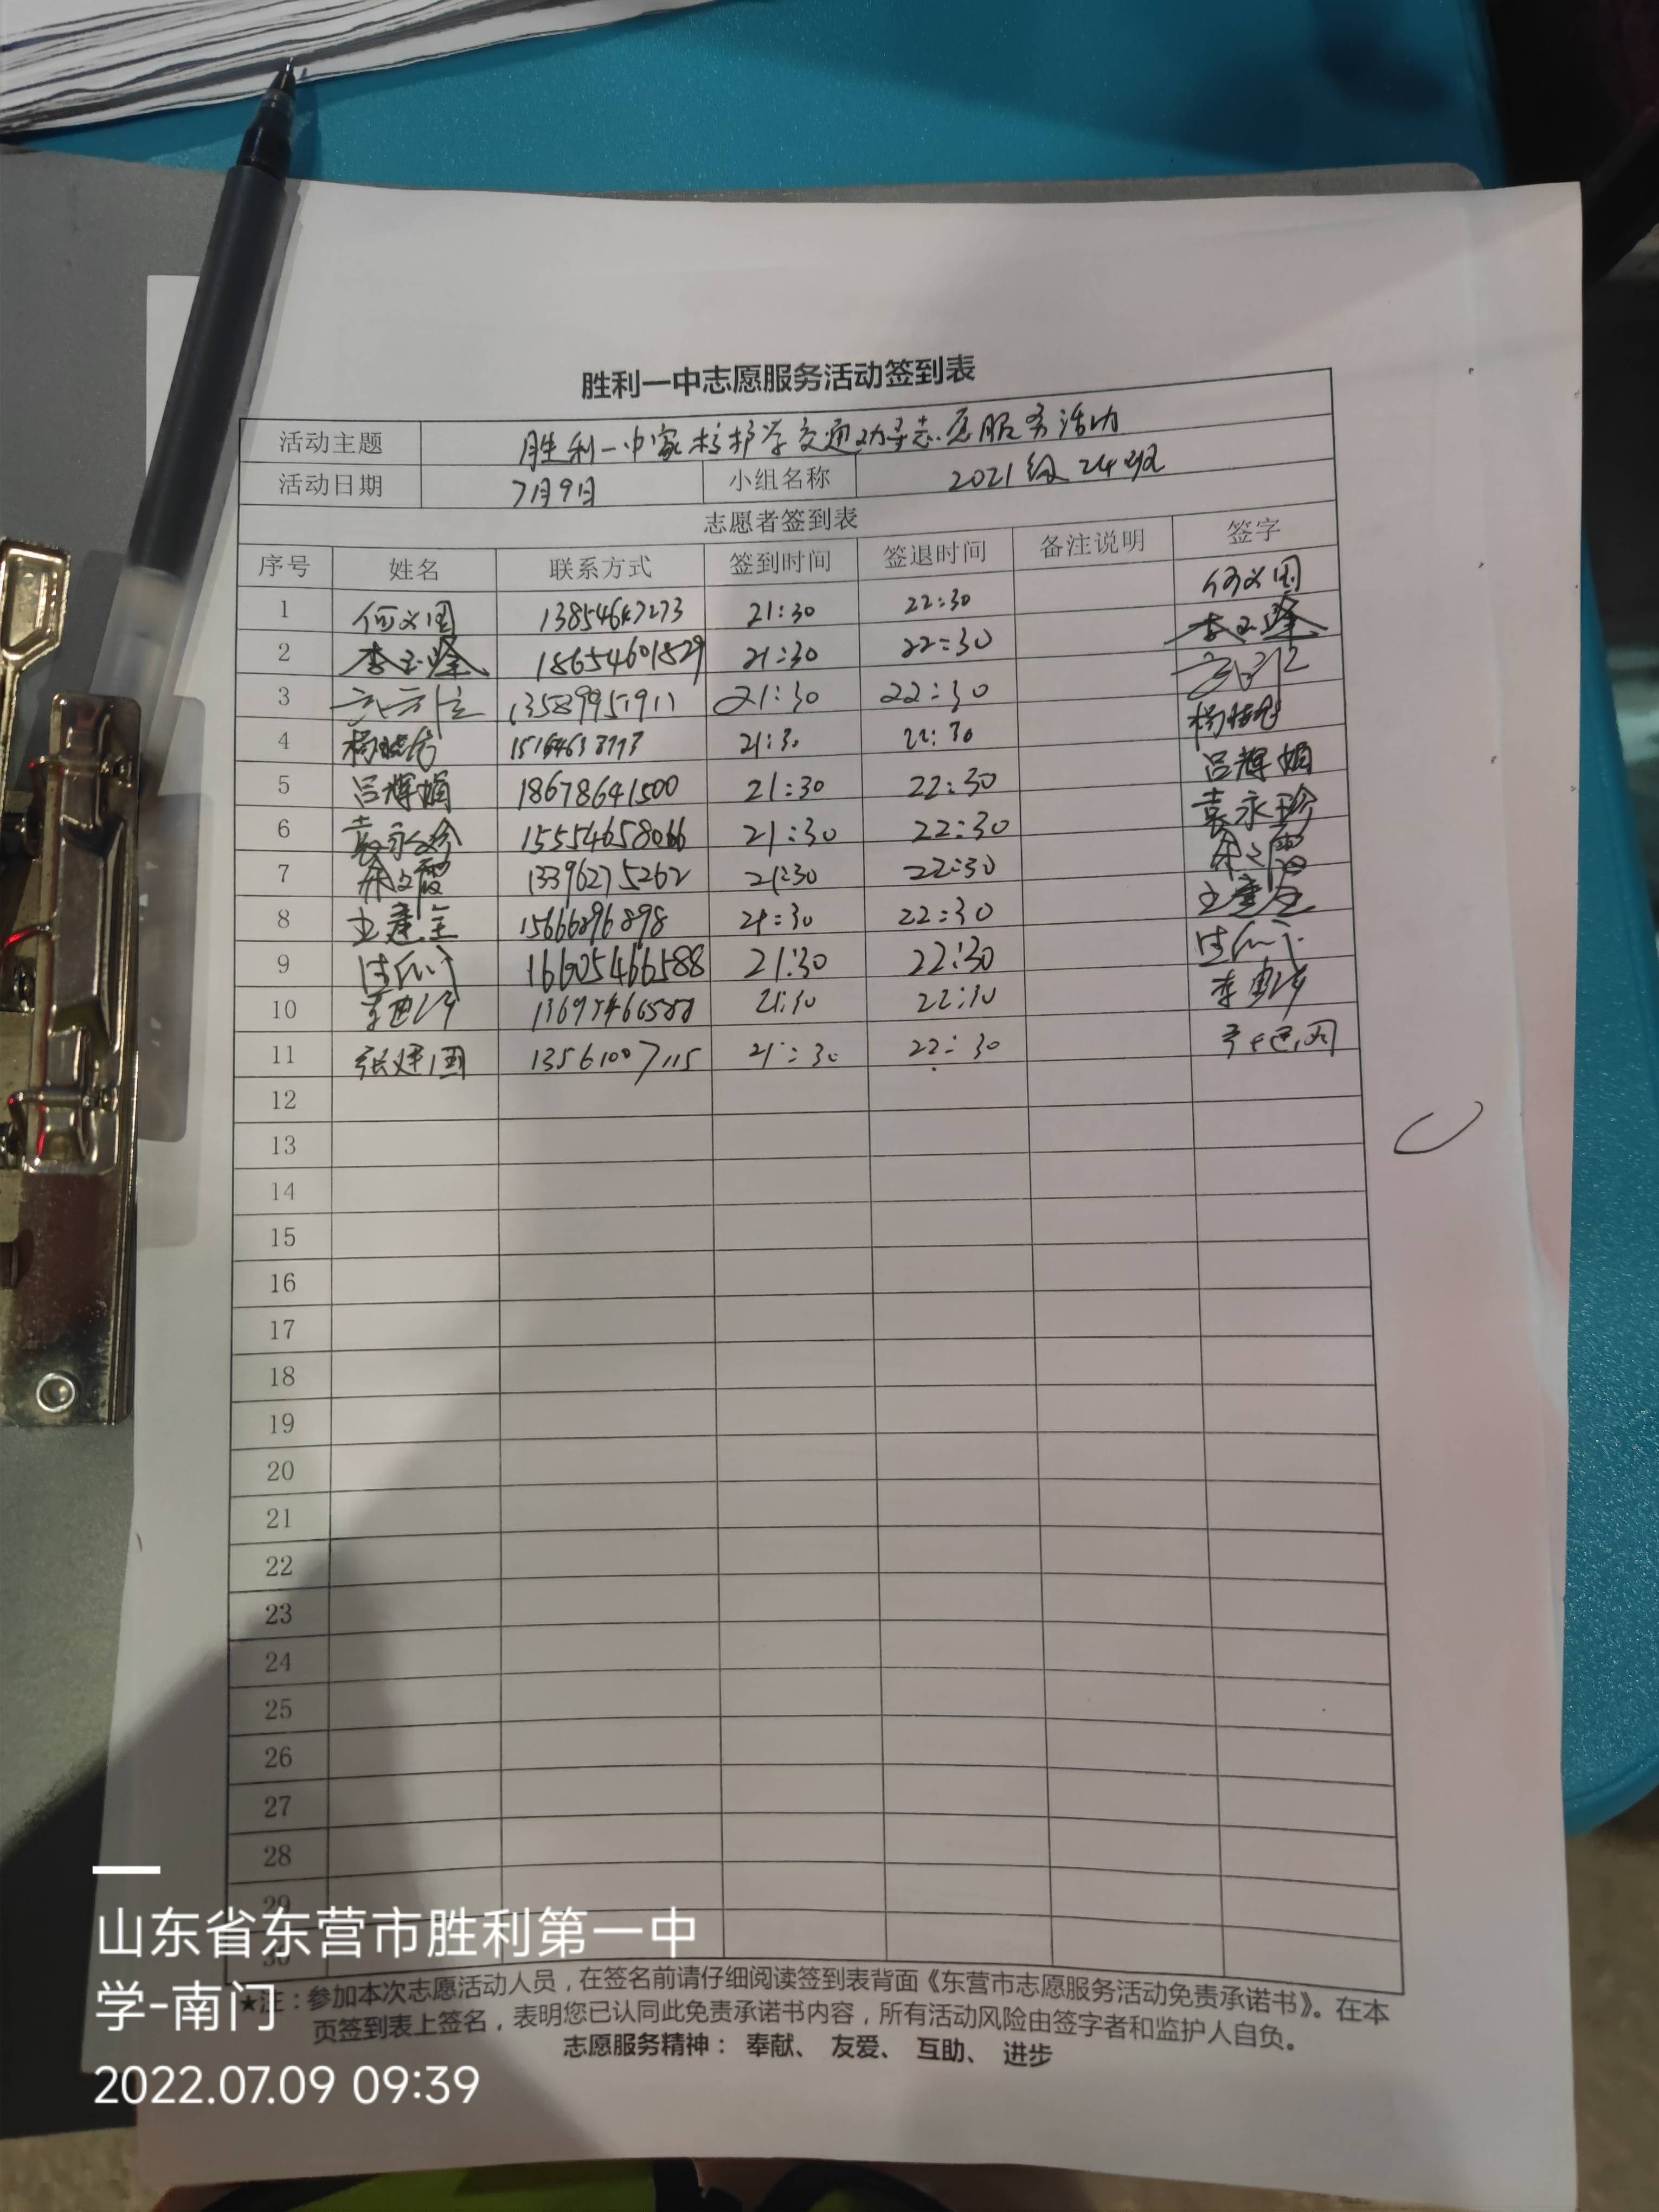 胜利一中志愿服务活动签到表
活动主题 胜利一中家校护学交通劝导志愿服务活动
活动日期 7月9日 小组名称 2021级24班
志愿者签到表
序号 姓名 联系方式 签到时间 签退时间 备注说明 签字
1 何义国 21:30 22:30 何义国
2 李玉峰 18654601829 21:30 22:30 李玉峰
3 13589951911 21:30 22:30
4 21:30 22:30
5 吕辉娟 18678641500 21:30 22:30 吕辉娟
6 袁永珍 15554658066 21:30 22:30 袁永珍
7 13396275262 21:30 22:30
8 王建全 15666896898 21:30 22:30 王建全
9 21:30 22:30
10 21:30 22:30
11 张建国 13561007115 21:30 22:30 张建国
12
13
14
15
16
17
18
19
20
21
22
23
24
25
26
27
28
29
30
★注：参加本次志愿活动人员，在签名前请仔细阅读签到表背面《东营市志愿服务活动免责承诺书》。在本
页签到表上签名，表明您已认同此免责承诺书内容，所有活动风险由签字者和监护人自负。
志愿服务精神： 奉献、 友爱、 互助、 进步
山东省东营市胜利第一中
学-南门
2022.07.09 09:39